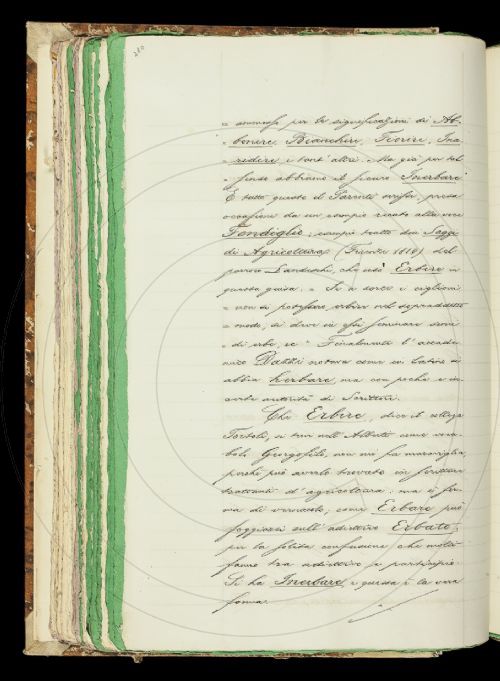 280
= ammessi per la significazione di Ab-
= bonire, Bianchire, Fiorire, Ina-
= ridire, e tant'altri. Ma già per tal
= senso abbiamo il sicuro Inerbare"
E tutto questo il Parenti scrisse, presa
occasione da un esempio recato alla voce
Fondiglio, esempio tratto dai Saggi
di Agricoltura (Firenze 1810) del
parroco Landeschi, che usò Erbire in
questa guisa. = Se i sorci e ciglioni
= non si potessero erbire nel sopraddetto
= modo, si deve in essi seminare semi
= di erbe, ec = Finalmente l'accade-
mico notava come in latino si
abbia herbare, ma con poche e in-
certe autorità di Scrittori.
Che Erbire, dice il collega
Tortoli, si trovi nell'Alberti come voca-
bolo Georgofilo, non mi fa maraviglia,
perchè può averlo trovato in scritture
trattanti d'agricoltura; ma è for-
ma di vernacolo; come Erbare può
foggiarsi sull'adiettivo Erbato,
per la solita confusione che molti
fanno tra adiettivo e participio.
Si ha Inerbare e questa è la vera
forma.